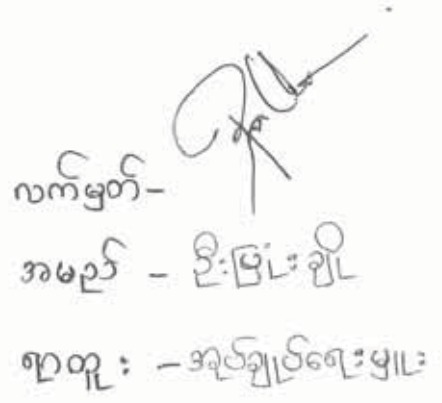 လက်မှတ် -
အမည် - ဦးမြုံးချို
ရာထူး - အုပ်ချုပ်ရေးမှူး